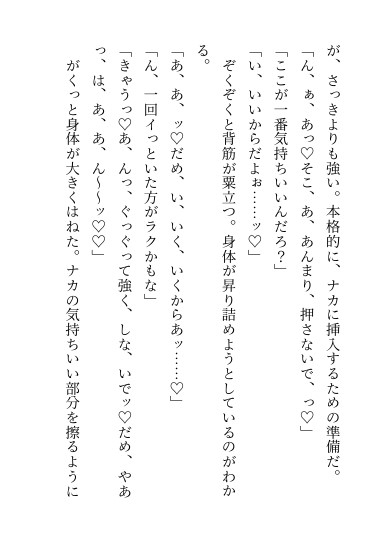 が、さっきよりも強い。本格的に、ナカに挿入するための準備だ。
「ん、ぁ、あっ♡そこ、あ、あんまり、押さないで、っ♡」
「ここが一番気持ちいいんだろ？」
「い、いいからだよぉ……ッ♡」
　ぞくぞくと背筋が粟立つ。身体が昇り詰めようとしているのがわか
る。
「あ、あ、ッ♡だめ、い、いく、いくからあッ……♡」
「ん、一回イっといた方がラクかもな」
「きゃうっ♡あ、んっ、ぐっぐって強く、しな、いでッ♡だめ、やあ
っ、は、あ、あ、ん〜〜ッ♡♡」
　がくっと身体が大きくはねた。ナカの気持ちいい部分を擦るように